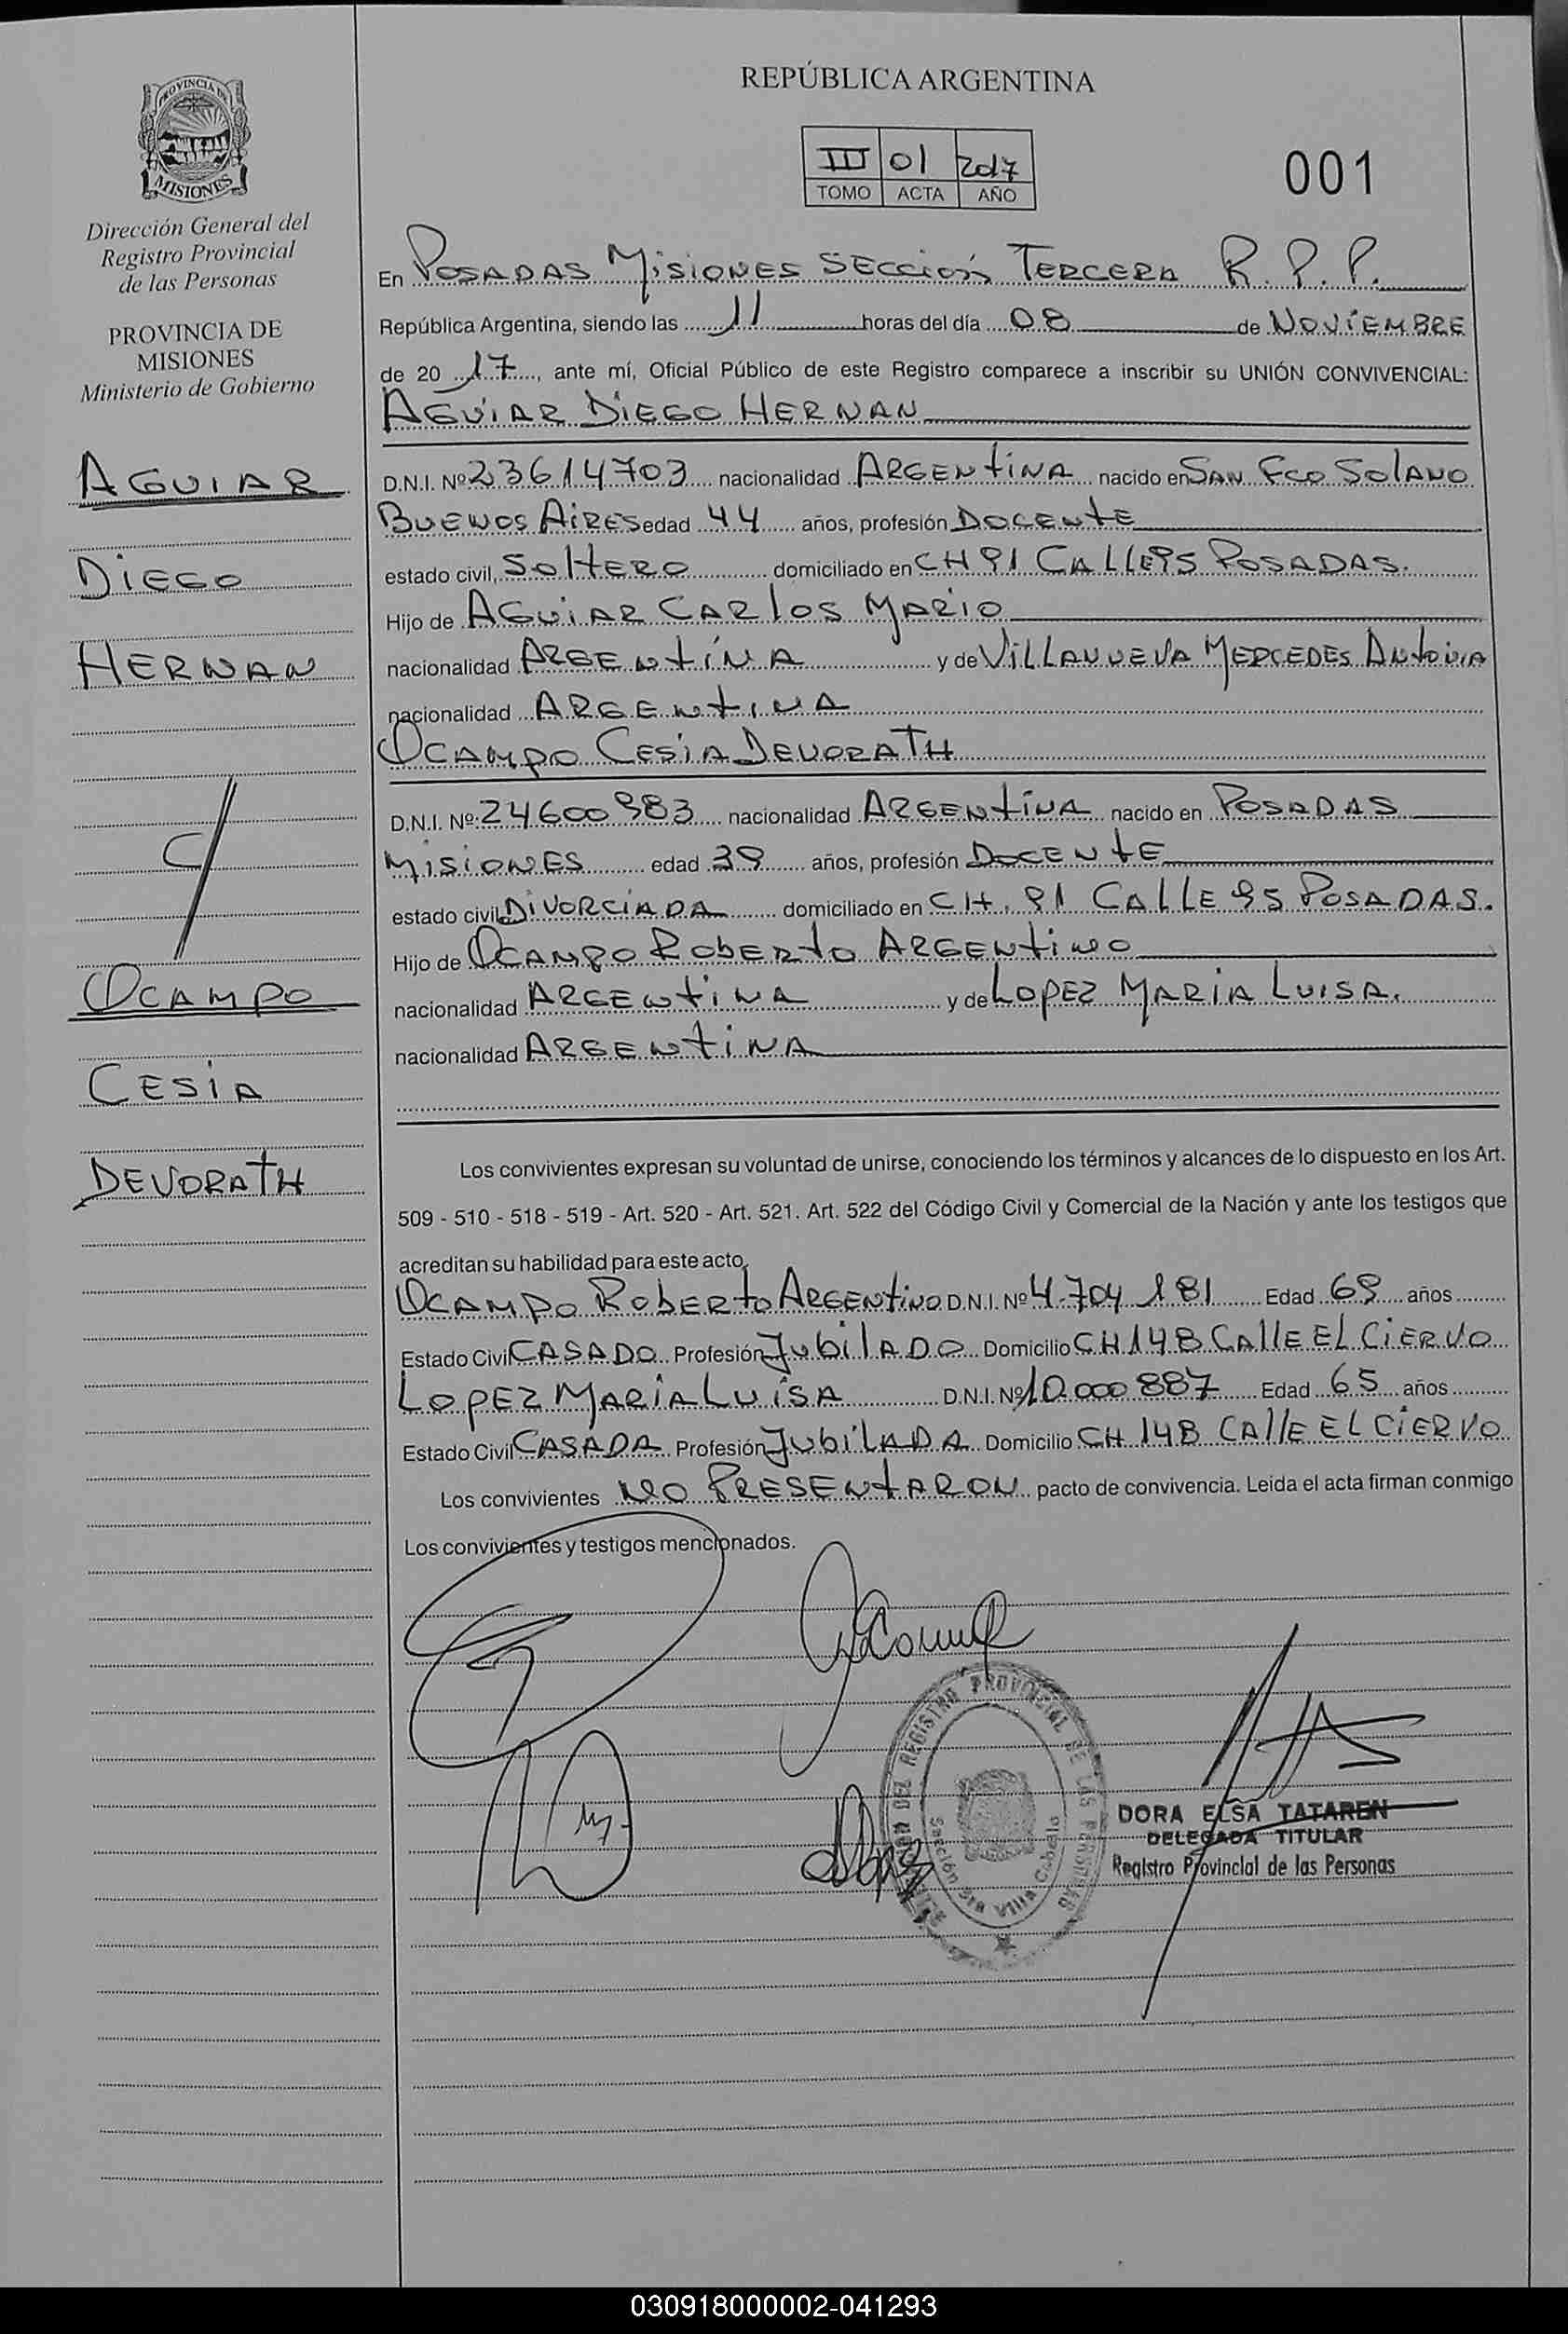 REPÚBLICA ARGENTINA
PROVINCIA DE
MISIONES
Dirección General del
Registro Provincial
de las Personas
PROVINCIA DE
MISIONES
Ministerio de Gobierno
III 01 2017
TOMO ACTA AÑO
001
En POSADAS MISIONES SECCIÓN TERCERA R. P. P.
República Argentina, siendo las 11 horas del día 08 de NOVIEMBRE
de 20 17, ante mí, Oficial Público de este Registro comparece a inscribir su UNIÓN CONVIVENCIAL:
AGUIAR DIEGO HERNAN
D.N.I. Nº 23614703 nacionalidad ARGENTINA nacido en SAN FCO SOLANO
BUENOS AIRES edad 44 años, profesión DOCENTE
estado civil, SOLTERO domiciliado en CH 91 CALLE 95 POSADAS.
Hijo de AGUIAR CARLOS MARIO
nacionalidad ARGENTINA y de VILLANUEVA MERCEDES ANTONIA
nacionalidad ARGENTINA
OCAMPO CESIA DEVORATH
D.N.I. Nº 24600983 nacionalidad ARGENTINA nacido en POSADAS
MISIONES edad 39 años, profesión DOCENTE
estado civil DIVORCIADA domiciliado en CH. 91 CALLE 95 POSADAS.
Hijo de OCAMPO ROBERTO ARGENTINO
nacionalidad ARGENTINA y de LOPEZ MARIA LUISA.
nacionalidad ARGENTINA
AGUIAR
DIEGO
HERNAN
C/
OCAMPO
CESIA
DEVORATH
Los convivientes expresan su voluntad de unirse, conociendo los términos y alcances de lo dispuesto en los Art.
509 - 510 - 518 - 519 - Art. 520 - Art. 521. Art. 522 del Código Civil y Comercial de la Nación y ante los testigos que
acreditan su habilidad para este acto,
OCAMPO ROBERTO ARGENTINO D.N.I. Nº 4.704 181 Edad 69 años
Estado Civil CASADO Profesión JUBILADO Domicilio CH 148 CALLE EL CIERVO
LOPEZ MARIA LUISA D.N.I. Nº 10.000 887 Edad 65 años
Estado Civil CASADA Profesión JUBILADA Domicilio CH 148 CALLE EL CIERVO
Los convivientes NO PRESENTARON pacto de convivencia. Leida el acta firman conmigo
Los convivientes y testigos mencionados.
DEL REGISTRO PROVINCIAL DE LAS PERSONAS
Sección 3ra Villa Cabello
DORA ELSA TATAREN
DELEGADA TITULAR
Registro Provincial de las Personas
030918000002-041293